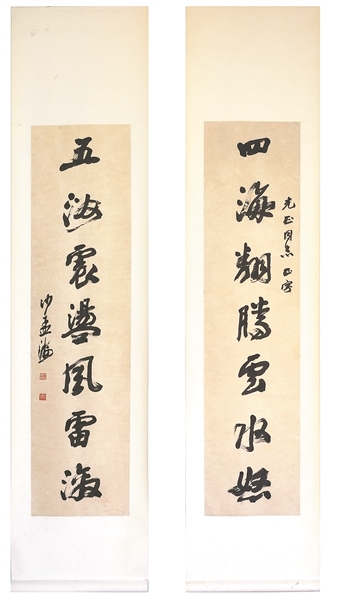 四海翻騰雲水怒
光正同志正字
五洲震盪風雷激
沙孟海